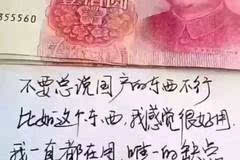 355560
不要总说国产的东西不行
比如这个东西,我感觉很好用
我一直都在用,唯一的缺点